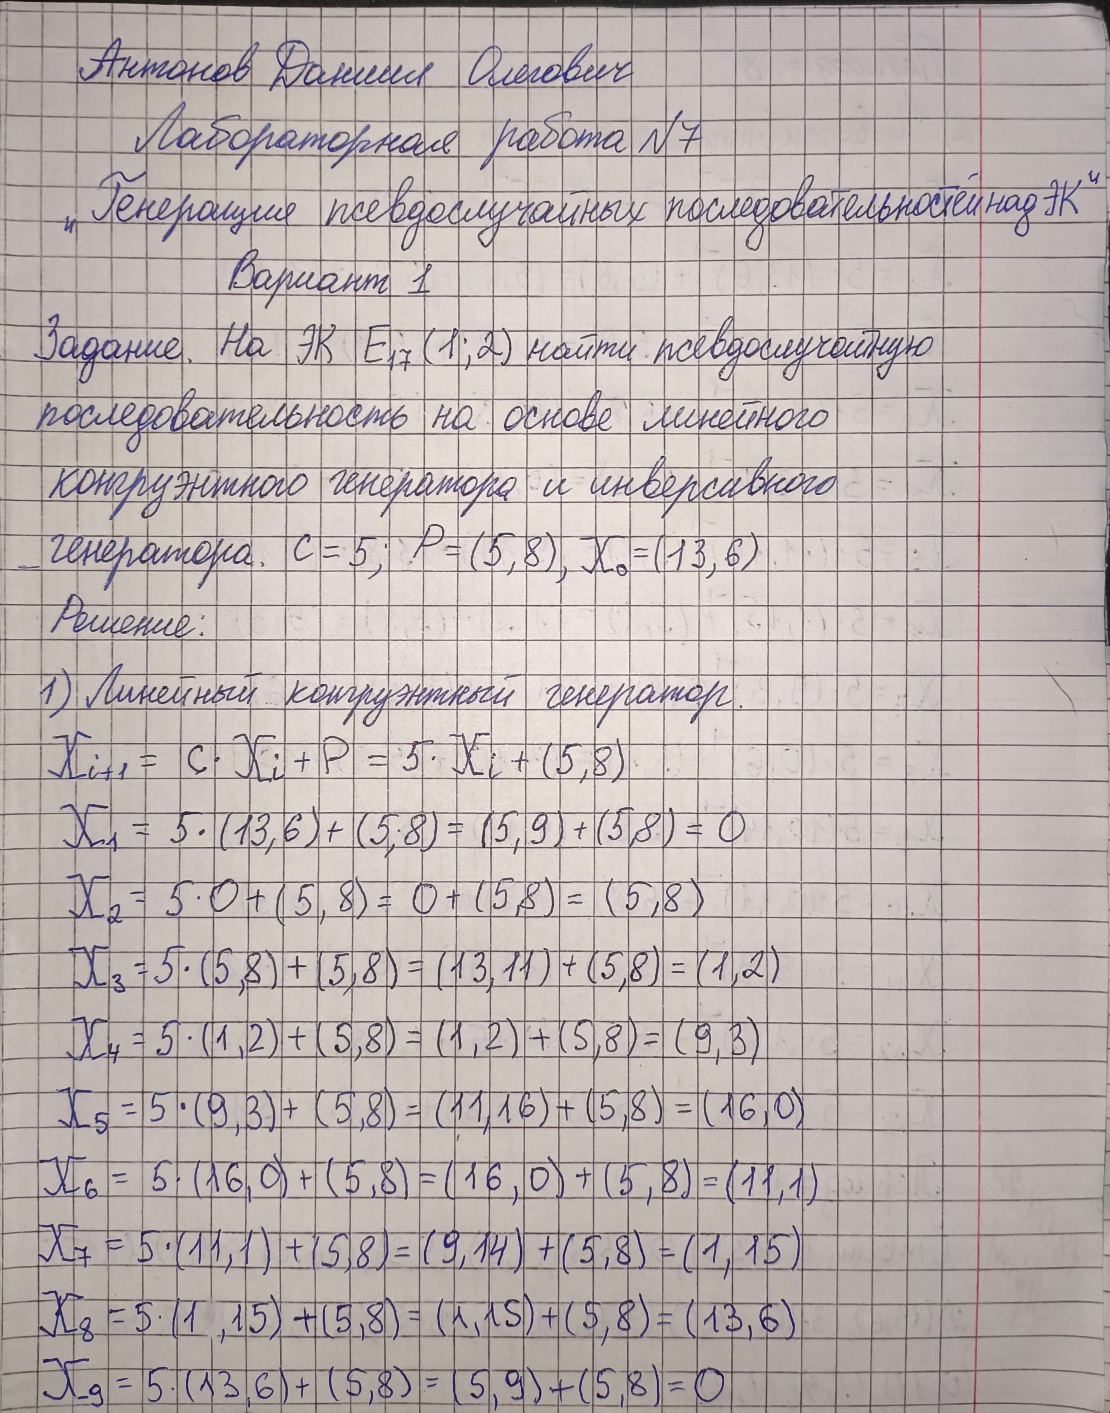 Антонов Даниил Олегович
Лабораторная работа №7
"Генерация псевдослучайных последовательностей над ЭК"
Вариант 1
Задание. На ЭК E₁₇(1;2) найти псевдослучайную
последовательность на основе линейного
конгруэнтного генератора и инверсивного
генератора. C=5; P=(5,8), X₀=(13,6)
Решение:
1) Линейный конгруэнтный генератор.
Xᵢ₊₁ = C·Xᵢ+P = 5·Xᵢ+(5,8)
X₁ = 5·(13,6)+(5,8)=(5,9)+(5,8)=0
X₂ = 5·0+(5,8)=0+(5,8)=(5,8)
X₃ =5·(5,8)+(5,8)=(13,11)+(5,8)=(1,2)
X₄ =5·(1,2)+(5,8)=(1,2)+(5,8)=(9,3)
X₅ = 5·(9,3)+(5,8)=(11,16)+(5,8)=(16,0)
X₆ = 5·(16,0)+(5,8)=(16,0)+(5,8)=(11,1)
X₇ =5·(11,1)+(5,8)=(9,14)+(5,8)=(1,15)
X₈ =5·(1,15)+(5,8)=(1,15)+(5,8)=(13,6)
X₉ = 5·(13,6)+(5,8)=(5,9)+(5,8)=0